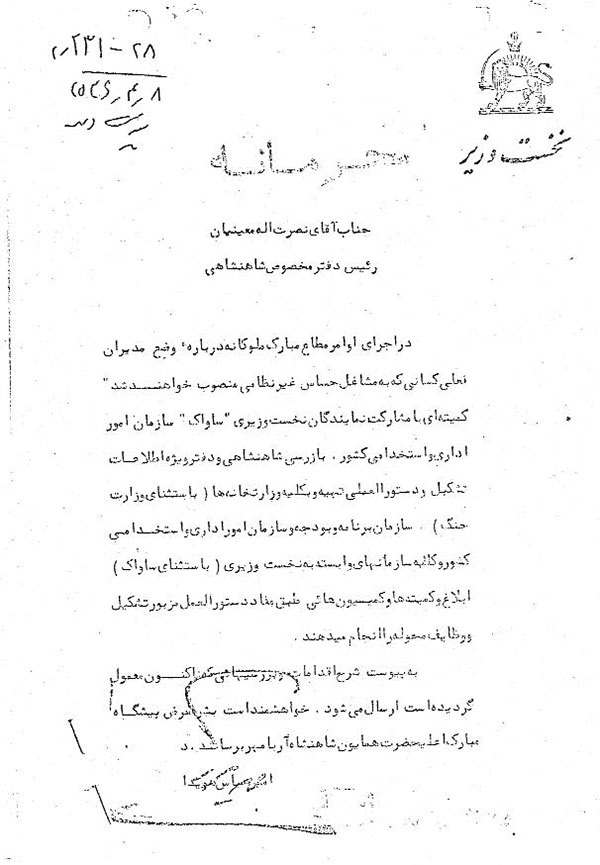 ۲۸-۲۳۱/م
۲۵۳۶/۴/۸
پیوست دارد
نخست وزیر
محرمانه
جناب آقای نصرت اله معینیان
رئیس دفتر مخصوص شاهنشاهی
در اجرای اوامر مطاع مبارک ملوکانه درباره "وضع مدیران
فعلی کسانی که به مشاغل حساس غیرنظامی منصوب خواهند شد"
کمیته‌ای با مشارکت نمایندگان نخست وزیری "ساواک" سازمان امور
اداری و استخدامی کشور . بازرسی شاهنشاهی و دفتر ویژه اطلاعات
تشکیل و دستورالعملی تهیه و بکلیه وزارتخانه‌ها ( باستثنای وزارت
جنگ ) . سازمان برنامه و بودجه و سازمان امور اداری و استخدامی
کشور و کلیه سازمانهای وابسته به نخست وزیری ( باستثنای ساواک )
ابلاغ و کمیته‌ها و کمیسیون هائی طبق مفاد دستورالعمل مزبور تشکیل
و وظایف محوله را انجام میدهند .
به پیوست شرح اقدامات و بررسیهائی که تاکنون معمول
گردیده است ارسال می شود . خواهشمند است بشرفعرض پیشگاه
مبارک اعلیحضرت همایون شاهنشاه آریامهر برسانند .
امیرعباس هویدا